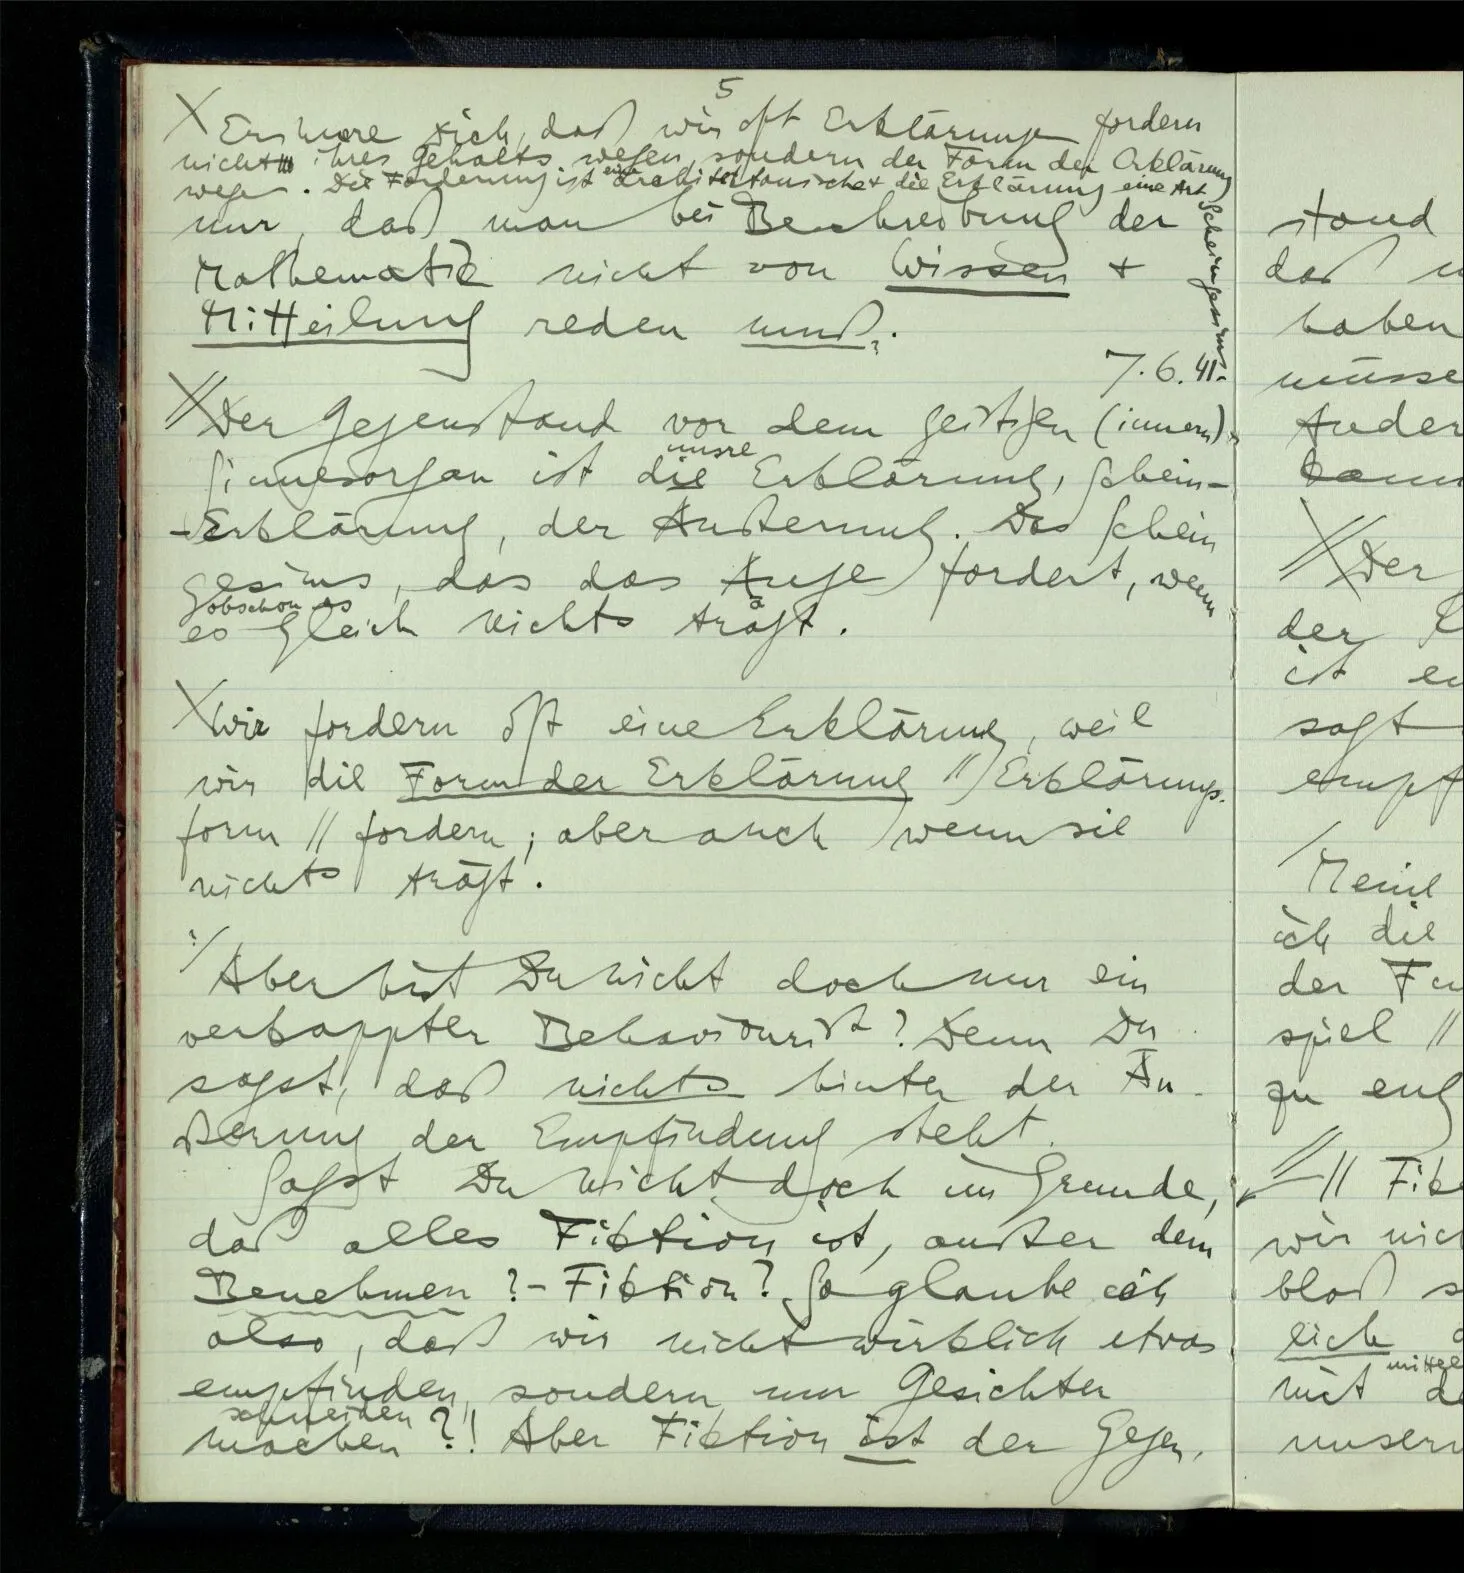 5
Erinnere dich, daß wir oft Erklärungen fordern
nicht ihres Gehalts wegen, sondern der Form der Erklärung
wegen. Die Forderung ist eine architektonische + die Erklärung eine Art
Scheingesims
nur, daß man bei Beschreibung der
Mathematik nicht von Wissen +
Mitteilung reden muß.
7.6.41.
Der Gegenstand vor dem geistigen (innern)
Sinnesorgan ist die unsre Erklärung, Schein-
-Erklärung, der Äußerung. Das Schein
gesims, das das Auge fordert, wenn
obschon es
es gleich nichts trägt.
Wir fordern oft eine Erklärung, weil
wir die Form der Erklärung // Erklärungs-
form // fordern; aber auch wenn sie
nichts trägt.
Aber bist Du nicht doch nur ein
verkappter Behaviourist? Denn Du
sagst, daß nichts hinter der Äu-
ßerung der Empfindung steht.
Sagst Du nicht doch im Grunde,
daß alles Fiktion ist, außer dem
Benehmen? – Fiktion? So glaube ich
also, daß wir nicht wirklich etwas
empfinden, sondern nur Gesichter
schneiden
machen?! Aber Fiktion ist der Gegen-
stand
daß
haben
müsse
Der
der
ist
sagt
empf
Meine
ich die
der
spiel //
zu eng
// Fik
wir nic
bloß s
lich
mit de
unsern